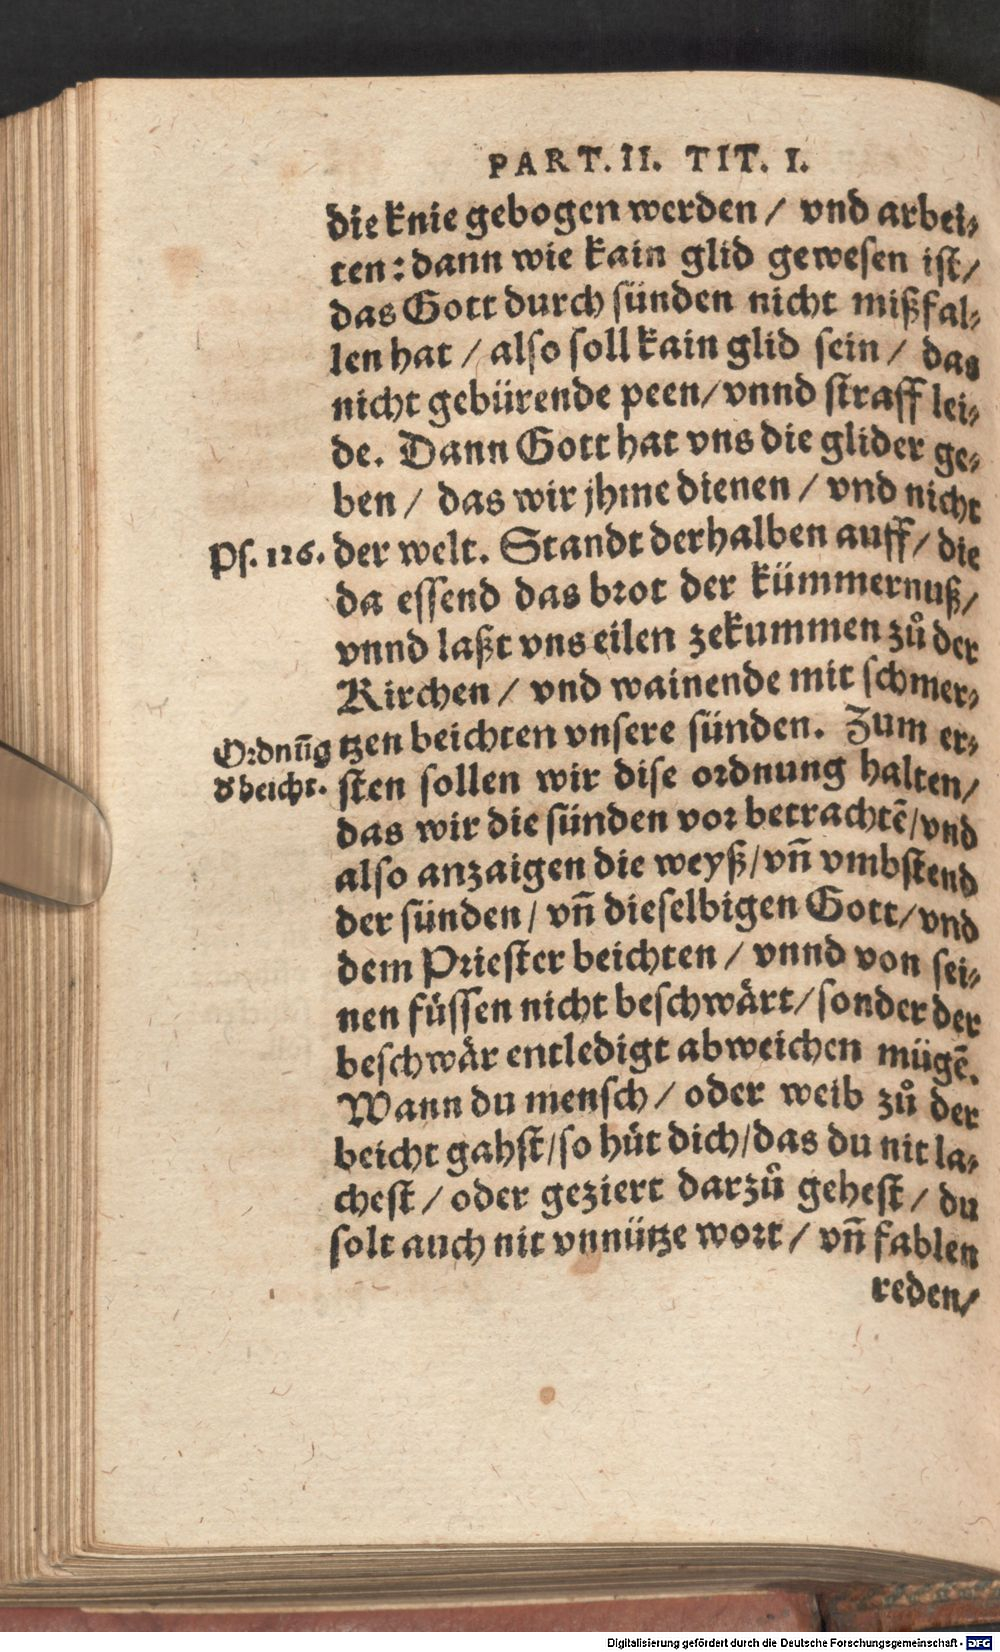 PART. II. TIT. I.
die knie gebogen werden / vnd arbei⸗
ten: dann wie kain glid gewesen ist /
das Gott durch sünden nicht mißfal⸗
len hat / also soll kain glid sein / das
nicht gebürende peen / vnnd straff lei⸗
de. Dann Gott hat vns die glider ge⸗
ben / das wir jhme dienen / vnd nicht
Ps. 126. der welt. Standt derhalben auff / die
da essend das brot der kümmernuß /
vnnd laßt vns eilen zekummen zů der
Kirchen / vnd wainende mit schmer⸗
Ordnūg tzen beichten vnsere sünden. Zum er⸗
d beicht. sten sollen wir dise ordnung halten /
das wir die sünden vor betrachtē / vnd
also anzaigen die weyß / vñ vmbstend
der sünden / vñ dieselbigen Gott / vnd
dem Priester beichten / vnnd von sei⸗
nen füssen nicht beschwärt / sonder der
beschwär entledigt abweichen mügē.
Wann du mensch / oder weib zů der
beicht gahst / so hüt dich / das du nit la⸗
chest / oder geziert darzů gehest / du
solt auch nit vnnütze wort / vñ fablen
reden /
Digitalisierung gefördert durch die Deutsche Forschungsgemeinschaft - DFG